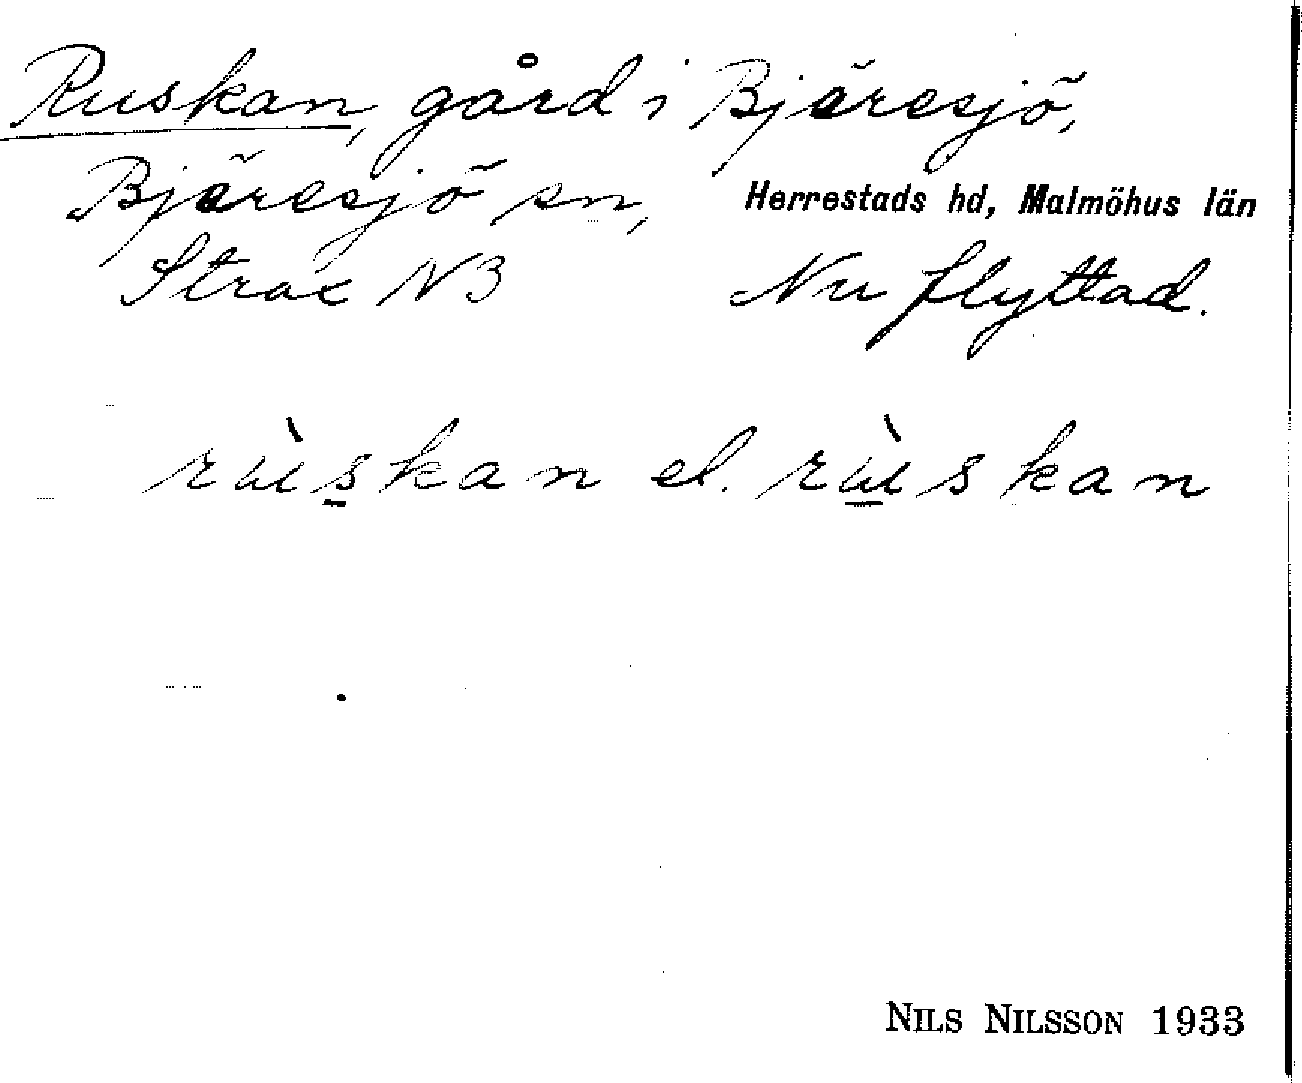 Ruskan, gård i Bjäresjö,
Bjäresjö sn, Herrestads hd, Malmöhus län
Strax NB Nu flyttad.
rùs̲kan el. rù̲skan
NILS NILSSON 1933